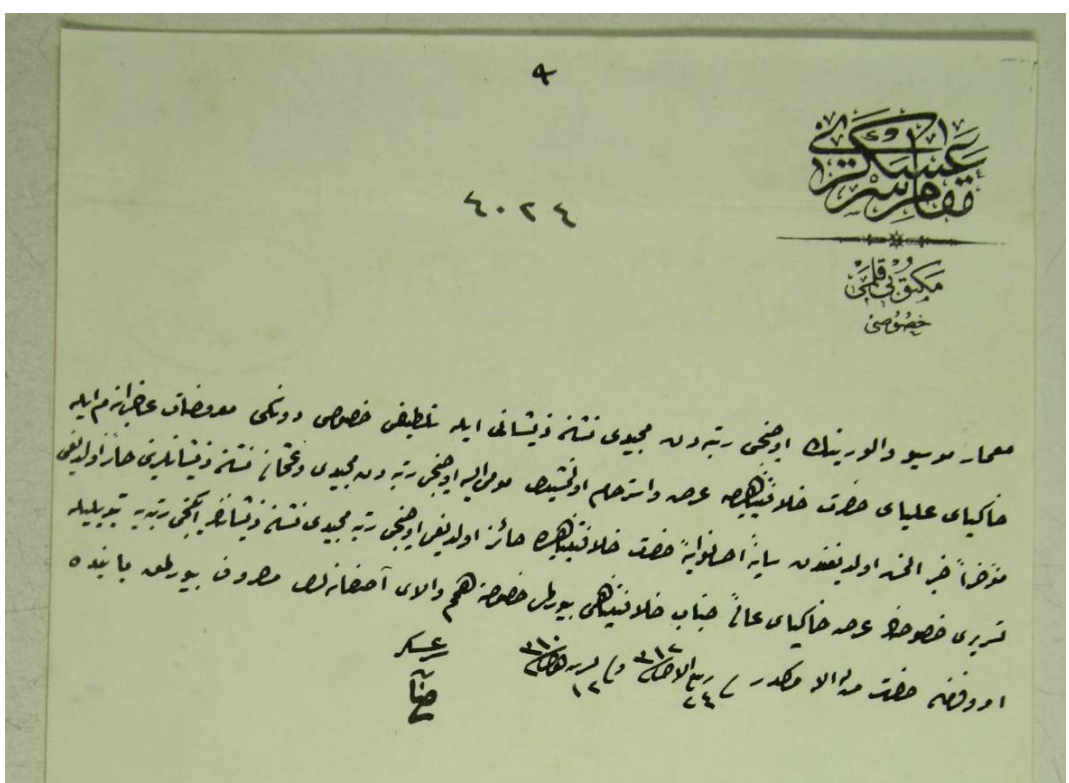 ٩
مقام سر عسكرى
مكتوبى قلمى
خصوصى
٤٠٢٤
معمار موسيو والورينك اوچنجى رتبه دن مجيدى نشان ذيشانى ايله تلطيفى خصوصى دونكى معروضات عاجزانه م ايله
خاكپاى علياى حضرت خلافتپناهى يه عرض واسترحام اولنمشيدى مومى اليه اوچنجى رتبه دن مجيدى وعثمانى نشان ذيشانلرينى حائز اولديغى
مؤخراً خبر النمش اولديغندن سايۀ احسانوايۀ حضرت خلافتپناهيده حائز اولديغى اوچنجى رتبه مجيدى نشان ذيشاننك ايكنجى رتبه يه تبديليله
تسريرى خصوصنك عرض خاكپاى عالئ جناب خلافتپناهى بيورلمسى خصوصنه همم والاى آصفانه لرى مصروف بيورلمق بابنده
امر وفرمان حضرت من له الامركدر فى ٢٤ ربيع الاخر سنه ٣١٢ وفى ١٢ سنه ٣١٠
سر عسكر
رضا